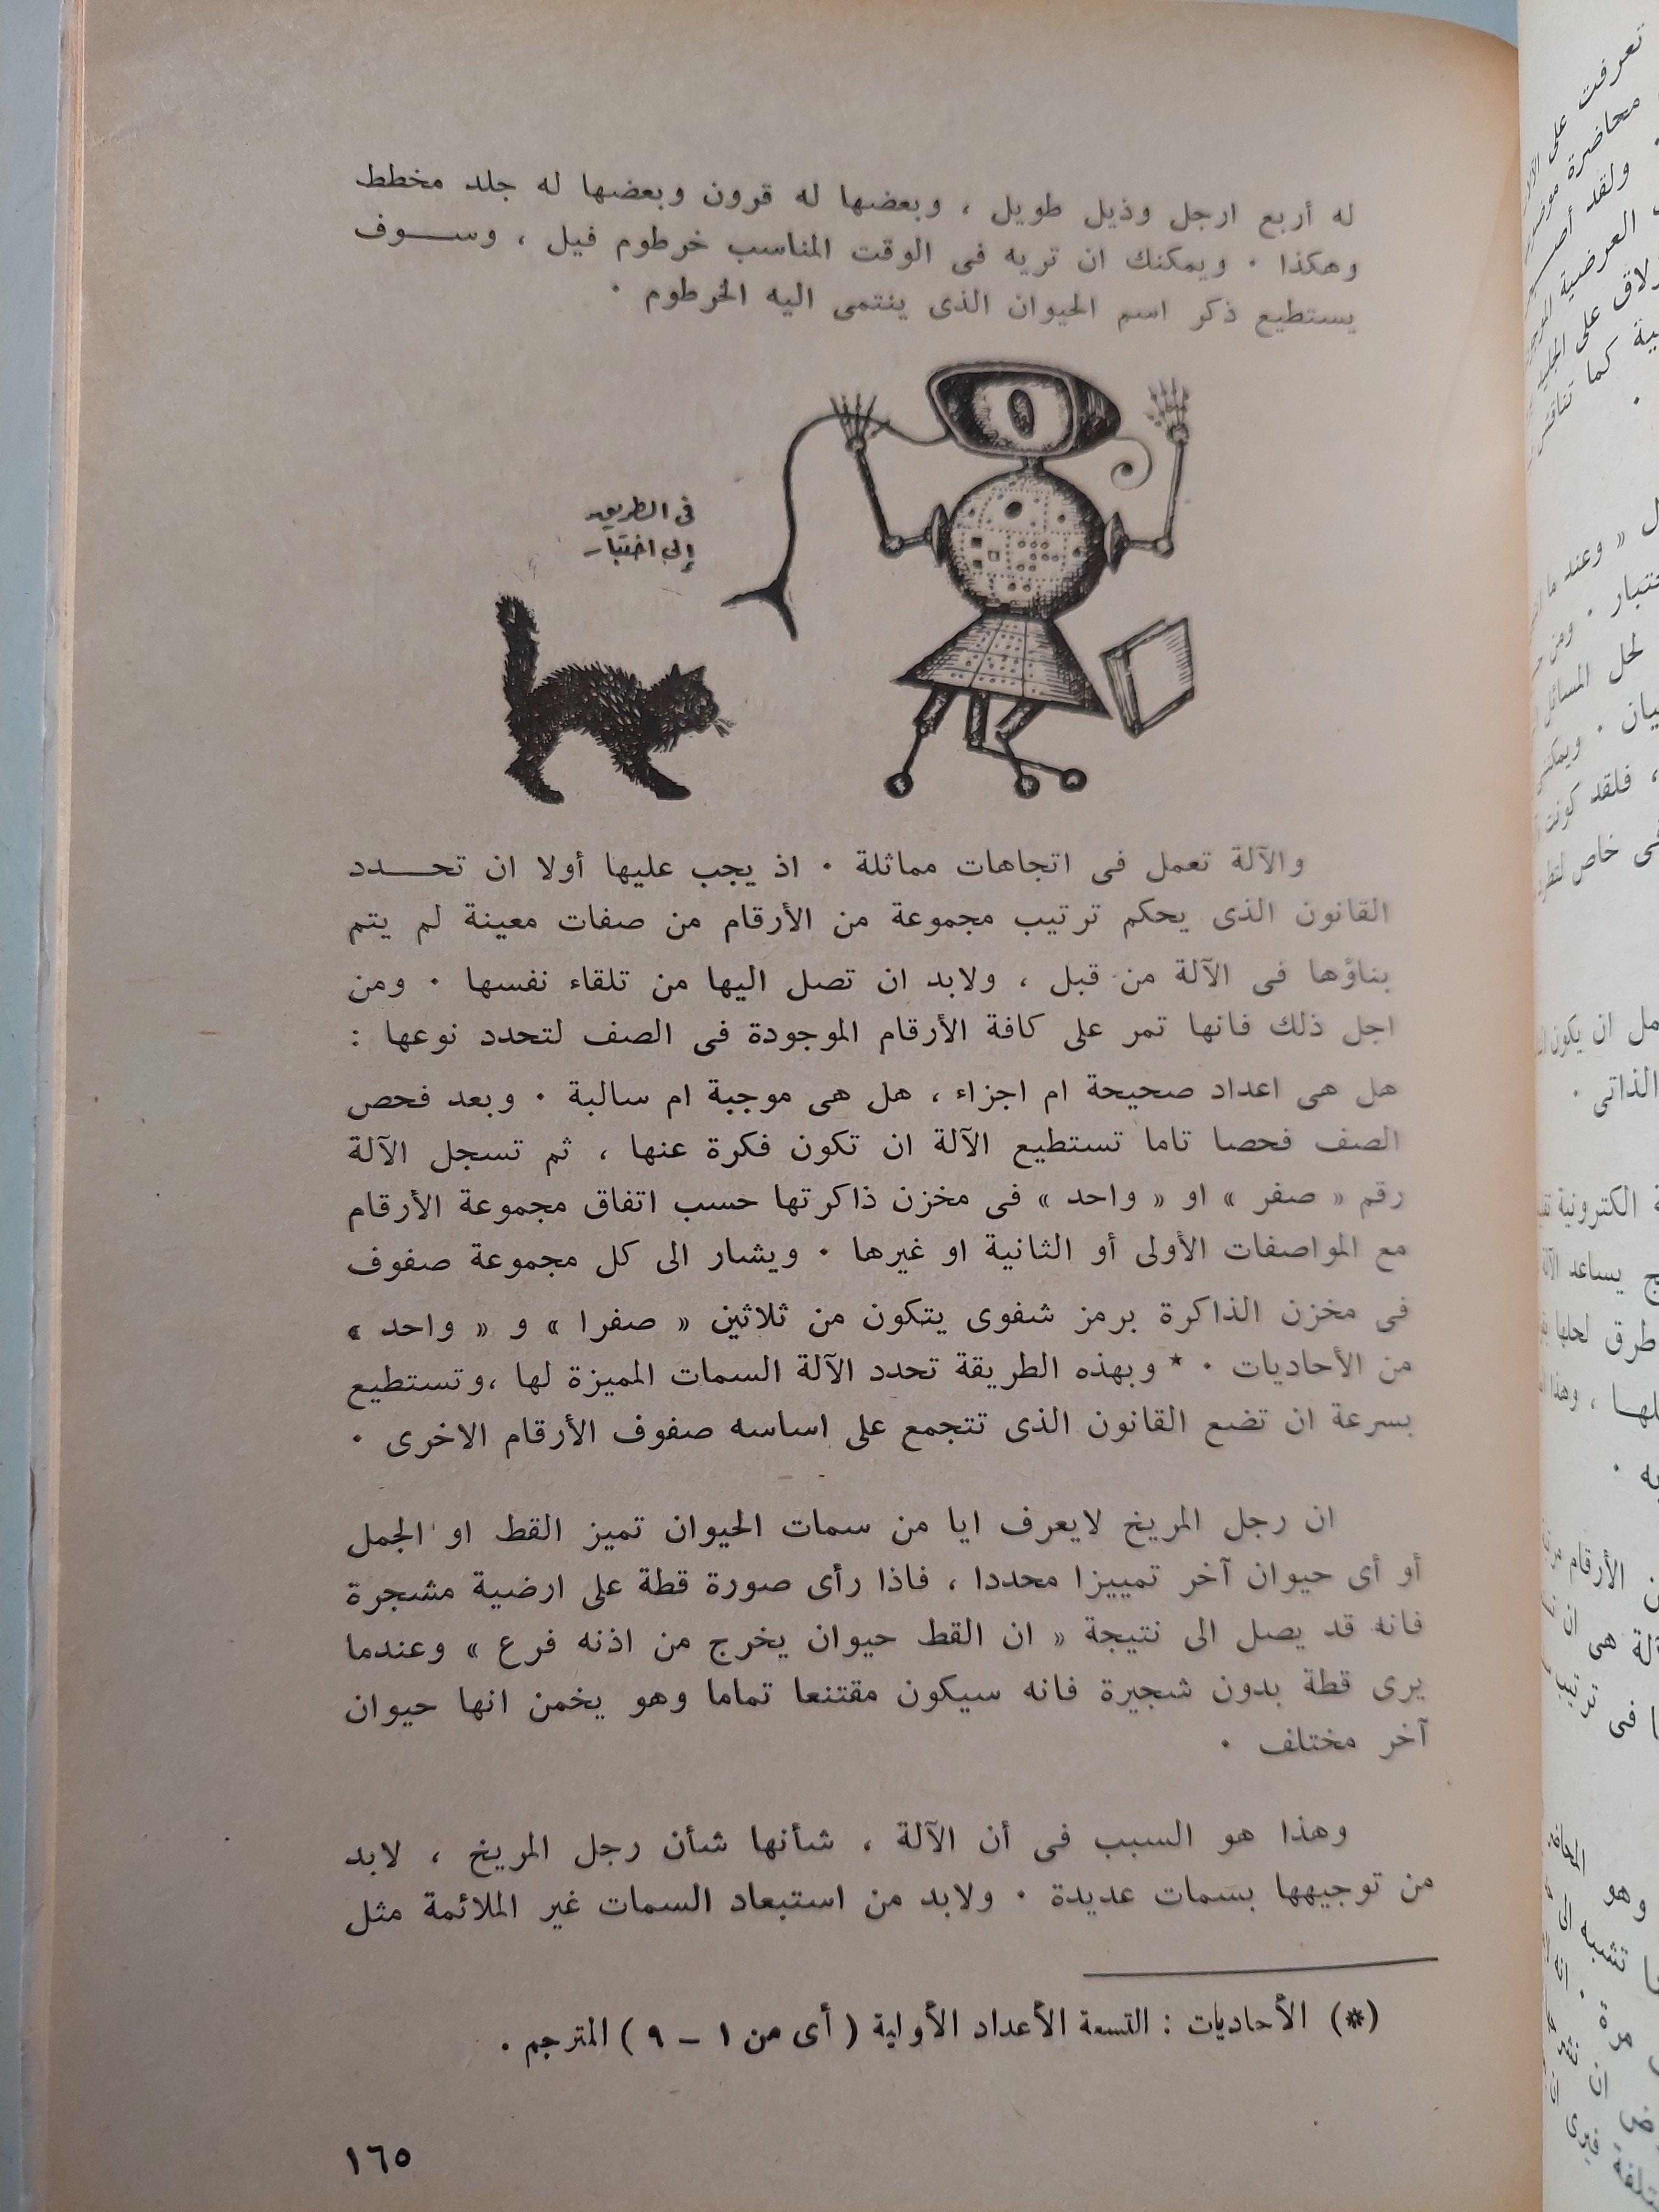 له أربع ارجل وذيل طويل ، وبعضها له قرون وبعضها له جلد مخطط
وهكذا ٠ ويمكنك ان تريه فى الوقت المناسب خرطوم فيل ، وسـوف
يستطيع ذكر اسم الحيوان الذى ينتمى اليه الخرطوم ٠
فى الطريق
إلى اختبار
والآلة تعمل فى اتجاهات مماثلة ٠ اذ يجب عليها أولا ان تحـدد
القانون الذى يحكم ترتيب مجموعة من الأرقام من صفات معينة لم يتم
بناؤها فى الآلة من قبل ، ولابد ان تصل اليها من تلقاء نفسها ٠ ومن
اجل ذلك فانها تمر على كافة الأرقام الموجودة فى الصف لتحدد نوعها :
هل هى اعداد صحيحة ام اجزاء ، هل هى موجبة ام سالبة ٠ وبعد فحص
الصف فحصا تاما تستطيع الآلة ان تكون فكرة عنها ، ثم تسجل الآلة
رقم « صفر » او « واحد » فى مخزن ذاكرتها حسب اتفاق مجموعة الأرقام
مع المواصفات الأولى أو الثانية او غيرها ٠ ويشار الى كل مجموعة صفوف
فى مخزن الذاكرة برمز شفوى يتكون من ثلاثين « صفرا » و « واحد »
من الأحاديات ٠ * وبهذه الطريقة تحدد الآلة السمات المميزة لها ،وتستطيع
بسرعة ان تضع القانون الذى تتجمع على اساسه صفوف الأرقام الاخرى ٠
ان رجل المريخ لايعرف ايا من سمات الحيوان تميز القط او الجمل
أو أى حيوان آخر تمييزا محددا ، فاذا رأى صورة قطة على ارضية مشجرة
فانه قد يصل الى نتيجة « ان القط حيوان يخرج من اذنه فرع » وعندما
يرى قطة بدون شجيرة فانه سيكون مقتنعا تماما وهو يخمن انها حيوان
آخر مختلف ٠
وهذا هو السبب فى أن الآلة ، شأنها شأن رجل المريخ ، لابد
من توجيهها بسمات عديدة ٠ ولابد من استبعاد السمات غير الملائمة مثل
(*) الأحاديات : التسعة الأعداد الأولية ( أى من ١ - ٩ ) المترجم .
١٦٥
تعرفت على
محاضرة
ولقد
العرضية
على الجليد
كما تناقش
« وعند ما
ومن
لحل المسائل
ويمكننى
، فلقد كونت
خاص
ان يكون
الذاتى ٠
الكترونية
يساعد الآلة
طرق لحلها
، وهذا
الأرقام
هى ان
فى ترتيب
وهو
تشبه الى
مرة